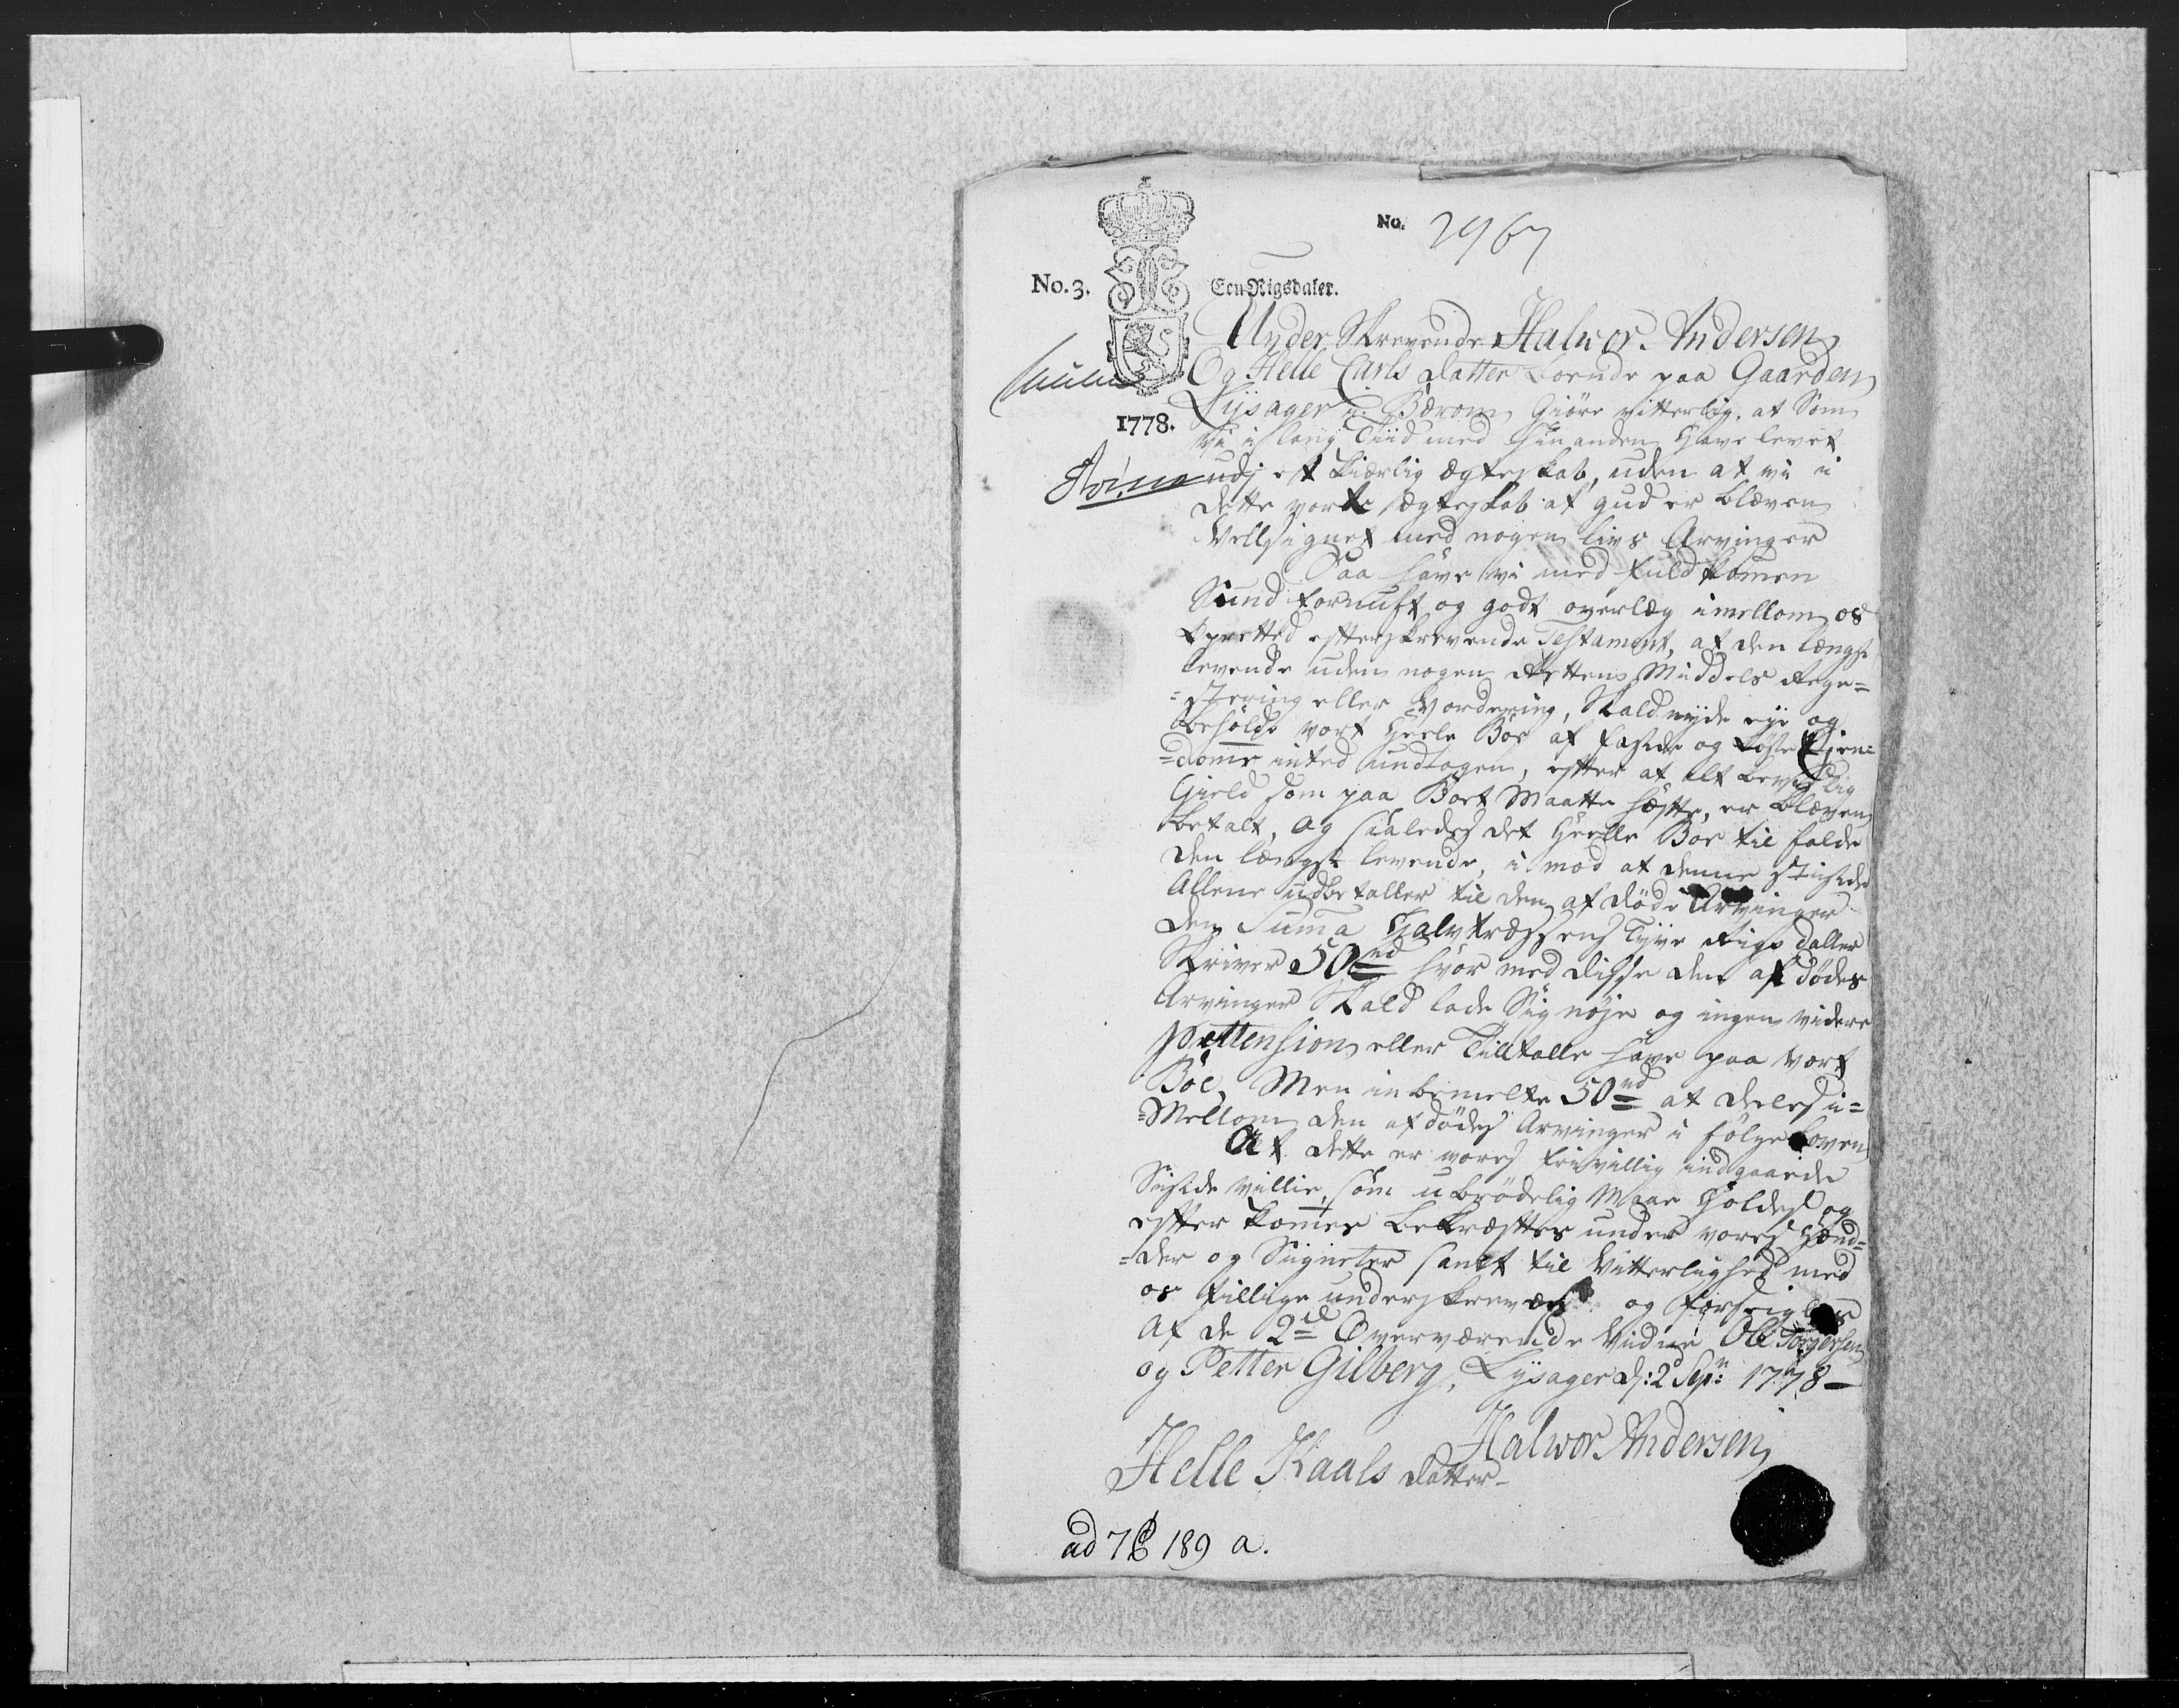 No. 2967
No. 3.
Een Rigsdaler.
1778.
Under Skrevende Halwor Andersen
Og Helle Carls datter boende paa Gaarden
Lÿsager i Bærom Giøre vitterlig, at Som
Vi i lang Tiid med hinanden have levet
udj et kiærlig Ægteskab, uden at vi i
dette vorte Ægteskab af gud er bleven
Vellsignet med nogen livs Arvinger
Saa have vi med fuldkomen
Sund fornuft og godt overlæg imellom os
opretted efterskrevende Testament, at den længst
levende uden nogen Rettens Middels Rege=
=strering eller Vordering, Skald nyde eje og
beholde vort heele Boe af faste og løse Ejen=
=dome inted undtagen, efter at alt bevislig
Gield som paa Boet Maatte hæfte, er bleven
betalt, og saaledes det heelle Boe til falde
den længst levende, i mod at denne sidste
Allene udbetaller til den af døde Arvinger
den Suma Halvtredssens Tyve Rigs daller
Skriver 50 rd hvor med disse den af dødes
Arvinger Skald lade Sig nøje og ingen videre
Prettension eller Tilltalle have paa vort
Boe, Men inbemelte 50 rd at deeles i=
=Mellom den af dødes Arvinger i følge Loven
At dette er vores frivillig indgaaede
Sidste Villie, som ubrødelig Maae holdes og
efter komes bekræftes under vores hænd=
=der og Signeter samt til Vitterlighed med
os tillige underskreven og forseiglet
Af de 2de Overværende Vidner Ole Torgersen
og Petter Gilberg, Lysager d: 2 Sep: 1778
Halwor Andersen
Helle Kaals datter
ad 7 189 a.